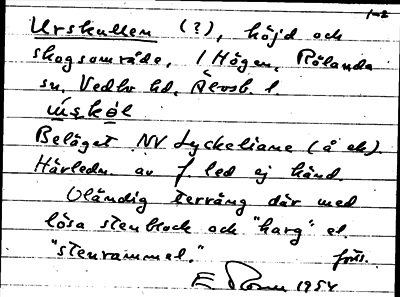 1-2
Urskullen (?), höjd och
skogsområde, i Högen, Rölanda
sn, Vedbo hd, Älvsb. l
ùşkö́l
Beläget NV Lyckeliane (å ek).
Härledn. av f. led ej känd.
Oländig terräng där med
lösa stenblock och "harg" el.
"stenrammel."
förts.
1954